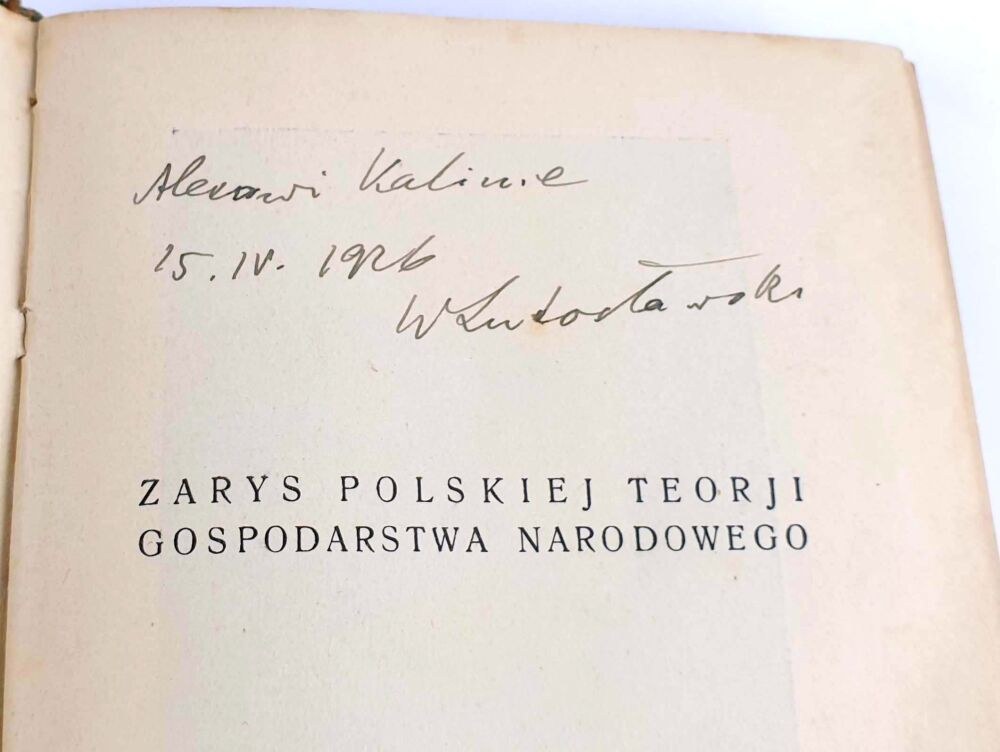 Alexowi Kalinie
15. IV. 1926
WLutosławski
ZARYS POLSKIEJ TEORJI
GOSPODARSTWA NARODOWEGO